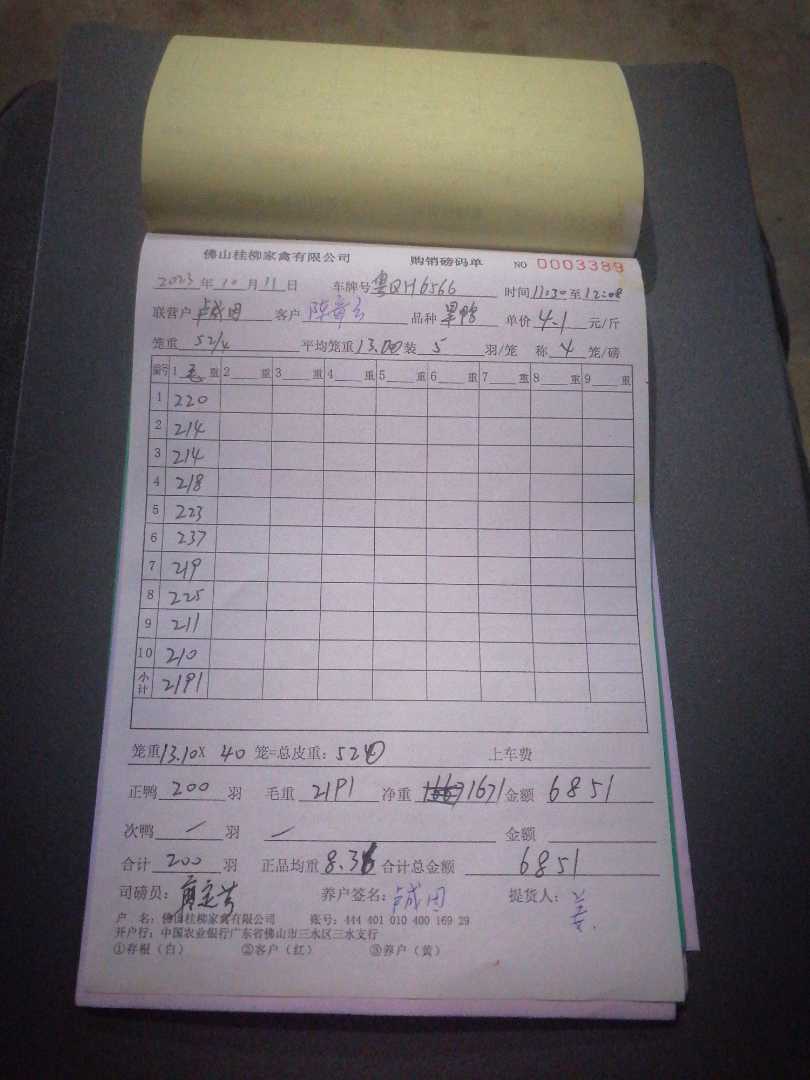 佛山桂柳家禽有限公司 购销磅码单 NO 0003389
2023 年 10 月 11 日 车牌号 粤QH6566 时间 11:30 至 12:08
联营户 卢成因 客户 品种 果鸭 单价 4.1 元/斤
笼重 52/4 平均笼重 13.00 装 5 羽/笼 称 4 笼/磅
编号 1 毛 重 2 重 3 重 4 重 5 重 6 重 7 重 8 重 9 重
1 220
2 214
3 214
4 218
5 223
6 237
7 219
8 225
9 211
10 210
小计 2191
笼重 13.10 X 40 笼=总皮重: 520 上车费
正鸭 200 羽 毛重 2191 净重 1671 金额 6851
次鸭 / 羽 / 金额
合计 200 羽 正品均重 8.36 合计总金额 6851
司磅员: 养户签名: 卢成因 提货人:
户 名: 佛山桂柳家禽有限公司 账号: 444 401 010 400 169 29
开户行: 中国农业银行广东省佛山市三水区三水支行
①存根（白） ②客户（红） ③养户（黄）